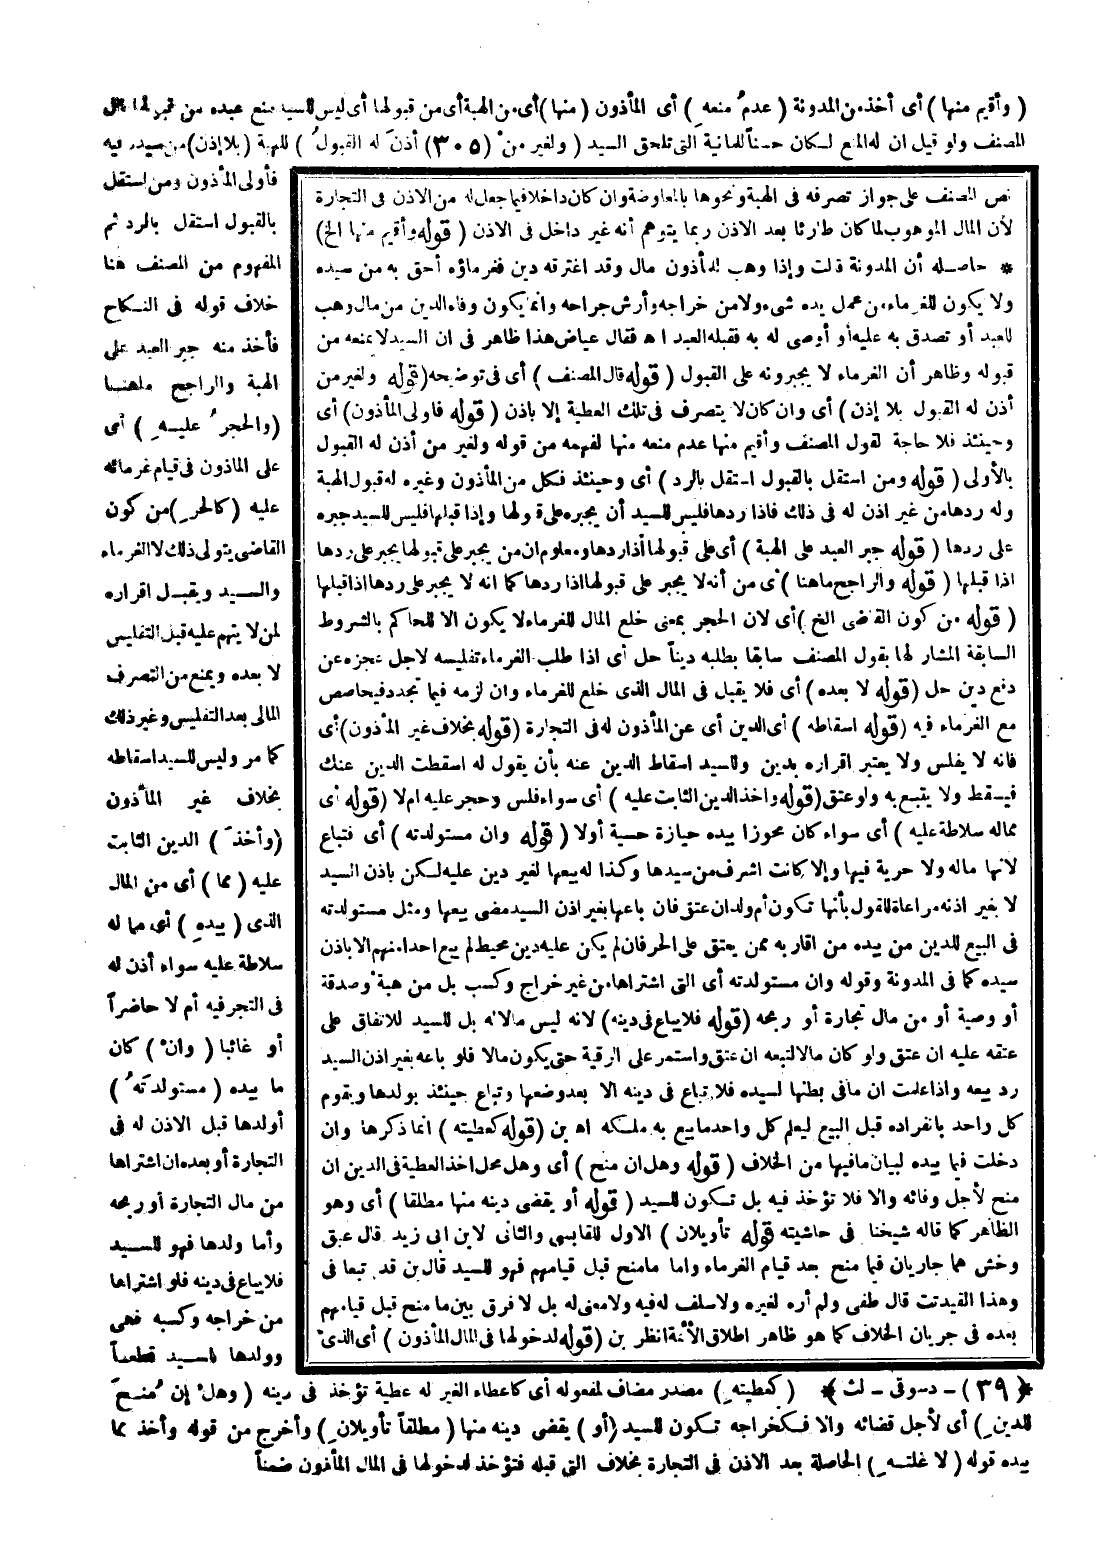 ( وأقيم منها ) أى أخذ من المدونة ( عدمُ منعه ِ ) أى المأذون ( منها ) أى من الهبة أى من قبولها أى ليس للسيد منع عبده من قبولها قال
المصنف ولو قيل ان له المنع لكان حسناً للمانية التى تلحق السيد ( ولغير منْ (٣٠٥) أذنَ له القبولُ ) للهبة ( بلا إذن ) من سيده فيه
فأولى المأذون ومن استقل
بالقبول استقل بالرد ثم
المفهوم من المصنف هنا
خلاف قوله فى النكاح
فأخذ منه جبر العبد على
الهبة والراجح ما هنا
( والحجرُ عليه ِ ) أى
على المأذون فى قيام غرمائه
عليه ( كالحر ِ ) من كون
القاضى يتولى ذلك لا الغرماء
والسيد ويقبل اقراره
لمن لا يتهم عليه قبل التفليس
لا بعده ويمنع من التصرف
المالى بعد التفليس وغير ذلك
كما مر وليس للسيد اسقاطه
بخلاف غير المأذون
( وأخذَ ) الدين الثابت
عليه ( مما ) أى من المال
الذى ( بيده ِ ) أى مما له
سلاطة عليه سواء أذن له
فى التجر فيه أم لا حاضراً
أو غائبا ( وانْ ) كان
ما بيده ( مستولدتَهُ )
أولدها قبل الاذن له فى
التجارة أو بعده ان اشتراها
من مال التجارة أو ربحه
وأما ولدها فهو للسيد
فلا يباع فى دينه فلو اشتراها
من خراجه وكسبه فهى
وولدها للسيد قطعاً
نص المصنف على جواز تصرفه فى الهبة ونحوها بالمعاوضة وان كان داخلا فيما جعل له من الاذن فى التجارة
لأن المال الموهوب لما كان طارئا بعد الاذن ربما يتوهم أنه غير داخل فى الاذن ( قوله وأقيم منها الخ )
* حاصله أن المدونة قالت وإذا وهب للمأذون مال وقد اغترقه دين فغرماؤه أحق به من سيده
ولا يكون للغرماء من عمل يده شىء ولا من خراجه وأرش جراحه وانما يكون وفاء الدين من مال وهب
للعبد أو تصدق به عليه أو أوصى له به فقبله العبد اه فقال عياض هذا ظاهر فى ان السيد لا يمنعه من
قبوله وظاهر أن الغرماء لا يجبرونه على القبول ( قوله قال المصنف ) أى فى توضيحه ( قوله ولغير من
أذن له القبول بلا إذن ) أى وان كان لا يتصرف فى تلك العطية إلا باذن ( قوله فاولى المأذون ) أى
وحينئذ فلا حاجة لقول المصنف وأقيم منها عدم منعه منها لفهمه من قوله ولغير من أذن له القبول
بالأولى ( قوله ومن استقل بالقبول استقل بالرد ) أى وحينئذ فكل من المأذون وغيره له قبول الهبة
وله ردها من غير اذن له فى ذلك فاذا ردها فليس للسيد أن يجبره على قبولها وإذا قبلها فليس للسيد جبره
على ردها ( قوله جبر العبد على الهبة ) أى على قبولها أذا ردها ومعلوم ان من يجبر على قبولها يجبر على ردها
اذا قبلها ( قوله والراجح ما هنا ) أى من أنه لا يجبر على قبولها اذا ردها كما انه لا يجبر على ردها اذا قبلها
( قوله من كون القاضى الخ ) أى لان الحجر بمعنى خلع المال للغرماء لا يكون الا للحاكم بالشروط
السابقة المشار لها بقول المصنف سابقا بطلبه ديناً حل أى اذا طلب الغرماء تفليسه لاجل عجزه عن
دفع دين حل ( قوله لا بعده ) أى فلا يقبل فى المال الذى خلع للغرماء وان لزمه فيما تجدد فيحاصص
مع الغرماء فيه ( قوله اسقاطه ) أى الدين أى عن المأذون له فى التجارة ( قوله بخلاف غير المأذون ) أى
فانه لا يفلس ولا يعتبر اقراره بدين وللسيد اسقاط الدين عنه بأن يقول له اسقطت الدين عنك
فيسقط ولا يتبع به ولو عتق ( قوله واخذ الدين الثابت عليه ) أى سواء فلس وحجر عليه ام لا ( قوله أى
مما له سلاطة عليه ) أى سواء كان محوزا بيده حيازة حسية أولا ( قوله وان مستولدته ) أى فتباع
لانها ماله ولا حرية فيها وإلا كانت اشرف من سيدها وكذا له بيعها لغير دين عليه لكن باذن السيد
لا بغير اذنه مراعاة للقول بأنها تكون أم ولد ان عتق فان باعها بغير اذن السيد مضى بيعها ومثل مستولدته
فى البيع للدين من بيده من اقاربه ممن يعتق على الحر فان لم يكن عليه دين محيط لم يبع احدا منهم الا باذن
سيده كما فى المدونة وقوله وان مستولدته أى التى اشتراها من غير خراج وكسب بل من هبة وصدقة
أو وصية أو من مال تجارة أو ربحه ( قوله فلا يباع فى دينه ) لانه ليس مالا له بل للسيد للاتفاق على
عتقه عليه ان عتق ولو كان مالا لتبعه ان عتق واستمر على الرقية حتى يكون مالا فلو باعه بغير اذن السيد
رد بيعه واذا علمت ان ما فى بطنها لسيده فلا تباع فى دينه الا بعد وضعها وتباع حينئذ بولدها ويقوم
كل واحد بانفراده قبل البيع ليعلم كل واحد ما بيع به ملكه اه بن ( قوله كعطيته ) انما ذكرها وان
دخلت فيما بيده لبيان ما فيها من الخلاف ( قوله وهل ان منح ) أى وهل محل اخذ العطية فى الدين ان
منح لأجل وفائه والا فلا تؤخذ فيه بل تكون للسيد ( قوله أو يقضى دينه منها مطلقا ) أى وهو
الظاهر كما قاله شيخنا فى حاشيته قوله تأويلان ) الاول للقابسى والثانى لابن ابى زيد قال عبق
وخش هما جاريان فيما منح بعد قيام الغرماء واما ما منح قبل قيامهم فهو للسيد قال بن قد تبعا فى
وهذا القيد تت قال طفى ولم أره لغيره ولا سلف له فيه ولا معنى له بل لا فرق بين ما منح قبل قيامهم
بعده فى جريان الخلاف كما هو ظاهر اطلاق الأئمة انظر بن ( قوله لدخولها فى المال المأذون ) أى الذىْ
﴿ (٣٩) - دسوقى - لث ﴾ ( كعطيته ِ ) مصدر مضاف لمفعوله أى كاعطاء الغير له عطية تؤخذ فى دينه ( وهلْ إن مُنحَ
للدين ِ ) أى لأجل قضائه والا فكخراجه تكون للسيد ( أو ) يقضى دينه منها ( مطلقاً تأويلان ِ ) وأخرج من قوله وأخذ مما
بيده قوله ( لا غلته ِ ) الحاصلة بعد الاذن فى التجارة بخلاف التى قبله فتؤخذ لدخولها فى المال المأذون ضمناً